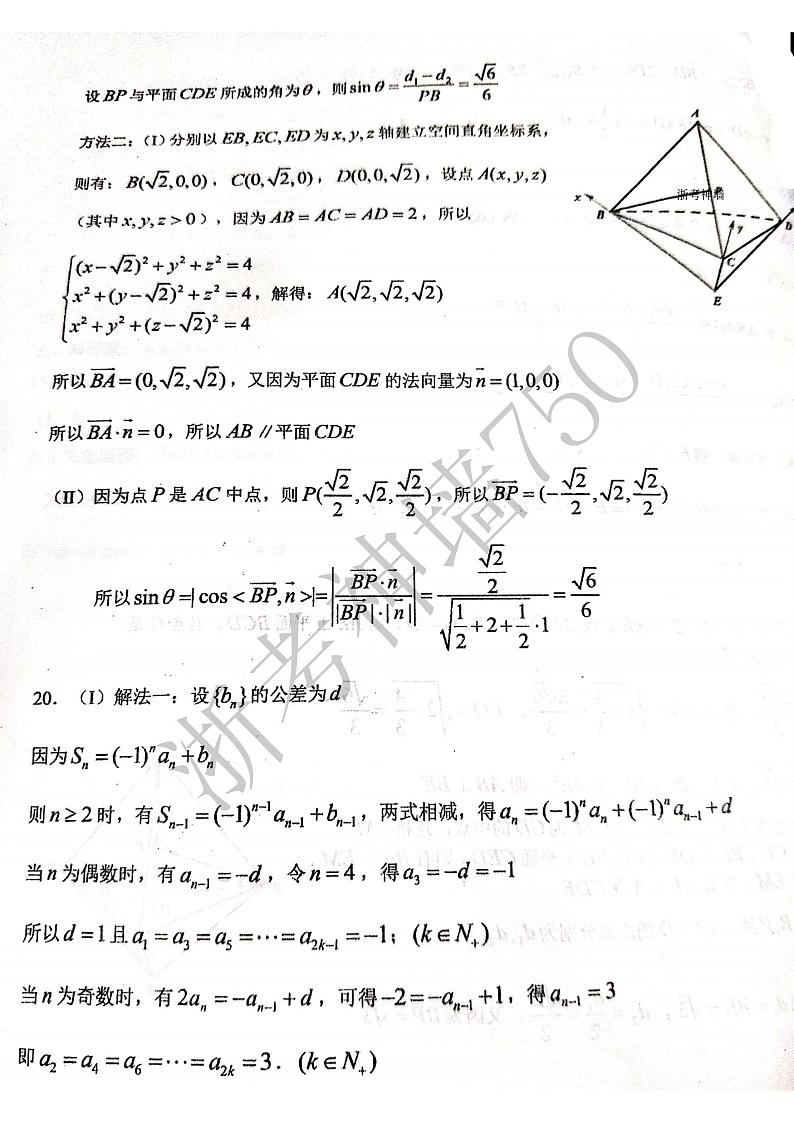 设BP与平面CDE所成的角为θ，则sinθ=\frac{d₁-d₂}{PB}=\frac{√6}{6}
方法二：(I)分别以EB,EC,ED为x,y,z轴建立空间直角坐标系，
则有：B(√2,0,0)，C(0,√2,0)，D(0,0,√2)，设点A(x,y,z)
（其中x,y,z>0），因为AB=AC=AD=2，所以
A
浙考神墙
x
B
D
y
C
E
(x-√2)²+y²+z²=4
x²+(y-√2)²+z²=4，解得：A(√2,√2,√2)
x²+y²+(z-√2)²=4
所以\vec{BA}=(0,√2,√2)，又因为平面CDE的法向量为\vec{n}=(1,0,0)
所以\vec{BA}·\vec{n}=0，所以AB∥平面CDE
(II)因为点P是AC中点，则P(\frac{√2}{2},√2,\frac{√2}{2})，所以\vec{BP}=(-\frac{√2}{2},√2,\frac{√2}{2})
所以sinθ=|cos<\vec{BP},\vec{n}>|=|\frac{\vec{BP}·\vec{n}}{|\vec{BP}|·|\vec{n}|}|=\frac{\frac{√2}{2}}{\sqrt{\frac{1}{2}+2+\frac{1}{2}}·1}=\frac{√6}{6}
浙考神墙750
20．(I)解法一：设{bₙ}的公差为d
因为Sₙ=(-1)ⁿaₙ+bₙ
则n≥2时，有Sₙ₋₁=(-1)ⁿ⁻¹aₙ₋₁+bₙ₋₁，两式相减，得aₙ=(-1)ⁿaₙ+(-1)ⁿaₙ₋₁+d
当n为偶数时，有aₙ₋₁=-d，令n=4，得a₃=-d=-1
所以d=1且a₁=a₃=a₅=⋯=a₂ₖ₋₁=-1；(k∈N₊)
当n为奇数时，有2aₙ=-aₙ₋₁+d，可得-2=-aₙ₋₁+1，得aₙ₋₁=3
即a₂=a₄=a₆=⋯=a₂ₖ=3．(k∈N₊)